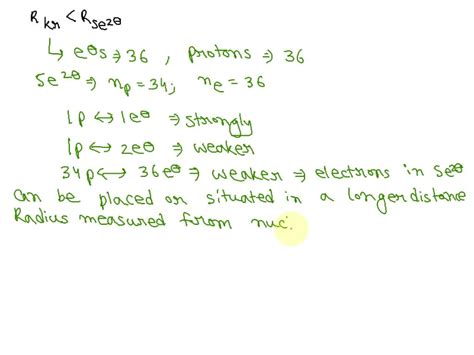 R Kr < R Se2⊖
↳ e⊖s ⇒ 36 , protons ⇒ 36
Se2⊖ ⇒ np = 34; ne = 36
1p ↔ 1e⊖ ⇒ strongly
1p ↔ 2e⊖ ⇒ weaker
34p ↔ 36e⊖ ⇒ weaker ⇒ electrons in Se2⊖
can be placed or situated in a longer distance
Radius measured from nuc.